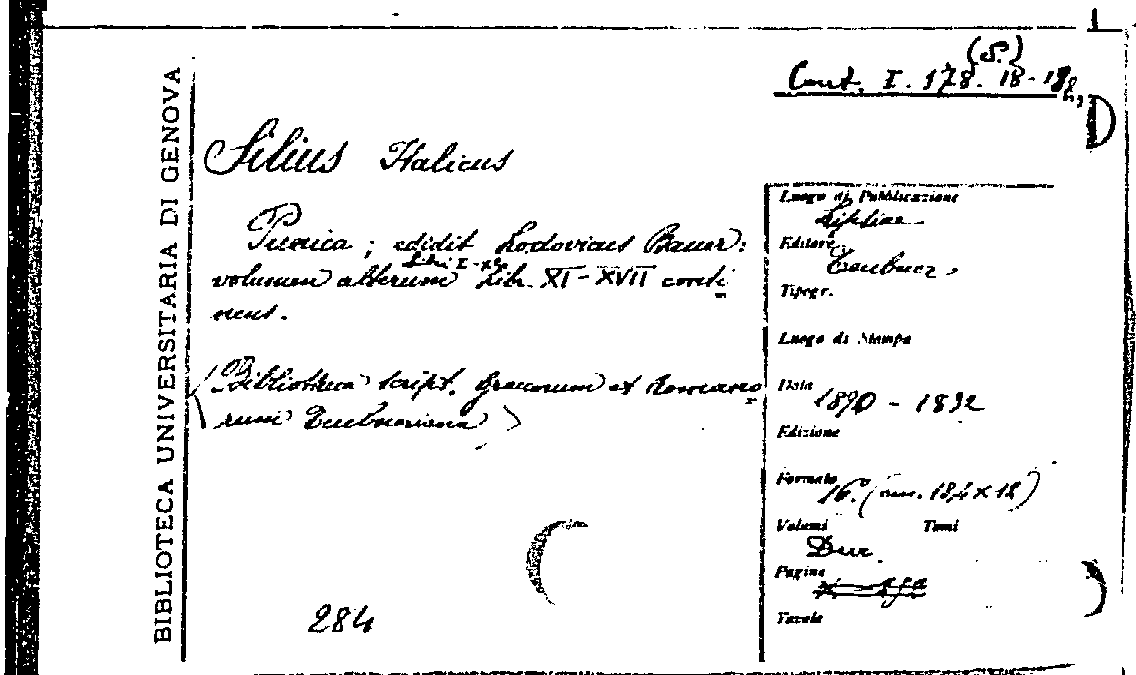 BIBLIOTECA UNIVERSITARIA DI GENOVA
(S.)
Cont. I. 178. 18-18
Silius Italicus
Punica; edidit Lodovicus Bauer:
Libri I-X
volumen alterum Libr. XI-XVII conti
nens.
(Bibliotheca script. Graecorum et Romano
rum Teubneriana)
284
Luogo di Pubblicazione
Lipsiae
Editore
Teubner
Tipogr.
Luogo di Stampa
Data
1890 - 1892
Edizione
Formato
16° (cm. 18,4 x 12)
Volumi Tomi
Due
Pagine
Tavole